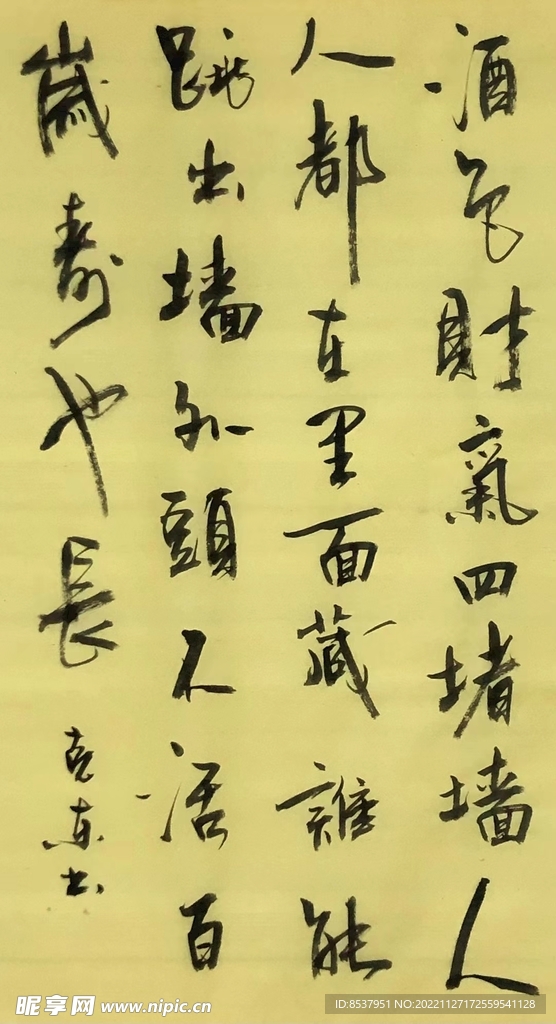 酒色财氣四堵墙人
人都在里面藏誰能
跳出墙外頭不活百
歲壽也長
克东书
昵享网 www.nipic.cn
ID:8537951 NO:20221127172559541128